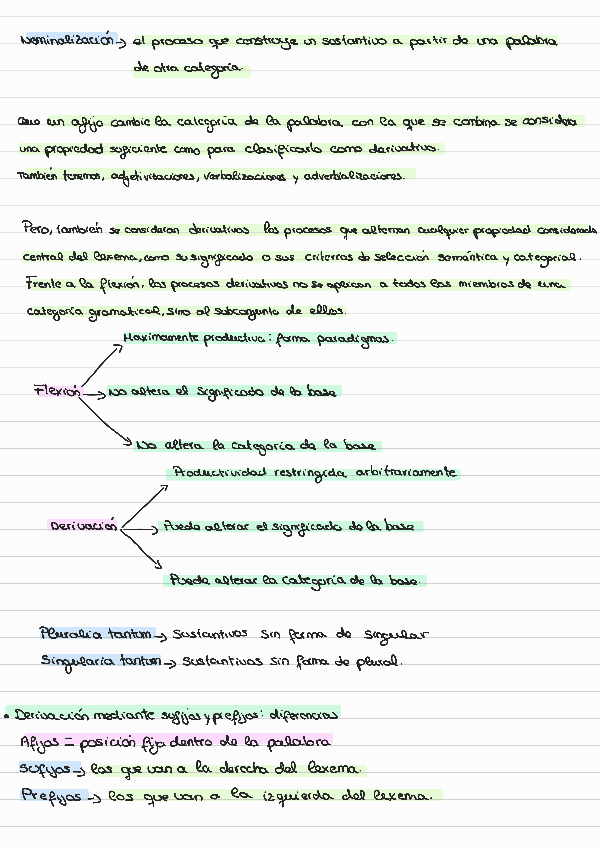 Nominalización → el proceso que construye un sustantivo a partir de una palabra
de otra categoría.
Que un afijo cambie la categoría de la palabra con la que se combina se considera
una propiedad suficiente como para clasificarlo como derivativo.
También tenemos, adjetivizaciones, verbalizaciones y adverbializaciones.
Pero, también se consideran derivativos los procesos que alternan cualquier propiedad considerada
central del lexema, como su significado o sus criterios de selección semántica y categorial.
Frente a la flexión, los procesos derivativos no se aplican a todos los miembros de una
categoría gramatical, sino al subconjunto de ellos.
Maximamente productiva: forma paradigmas.
Flexión → No altera el significado de la base
No altera la categoría de la base
Productividad restringida arbitrariamente
Derivación → Puede alterar el significado de la base
Puede alterar la categoría de la base.
Pluralia tantum → Sustantivos sin forma de singular
Singularia tantum → Sustantivos sin forma de plural.
• Derivación mediante sufijos y prefijos: diferencias
Afijos = posición fija dentro de la palabra
Sufijos → los que van a la derecha del lexema.
Prefijos → los que van a la izquierda del lexema.